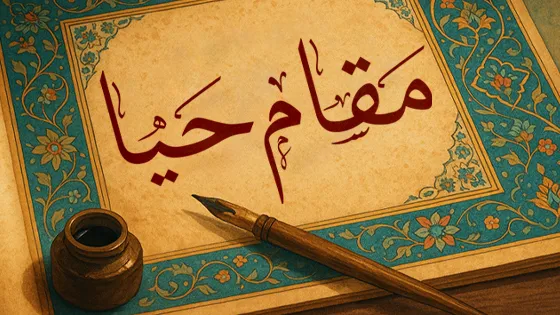 مقام حیا